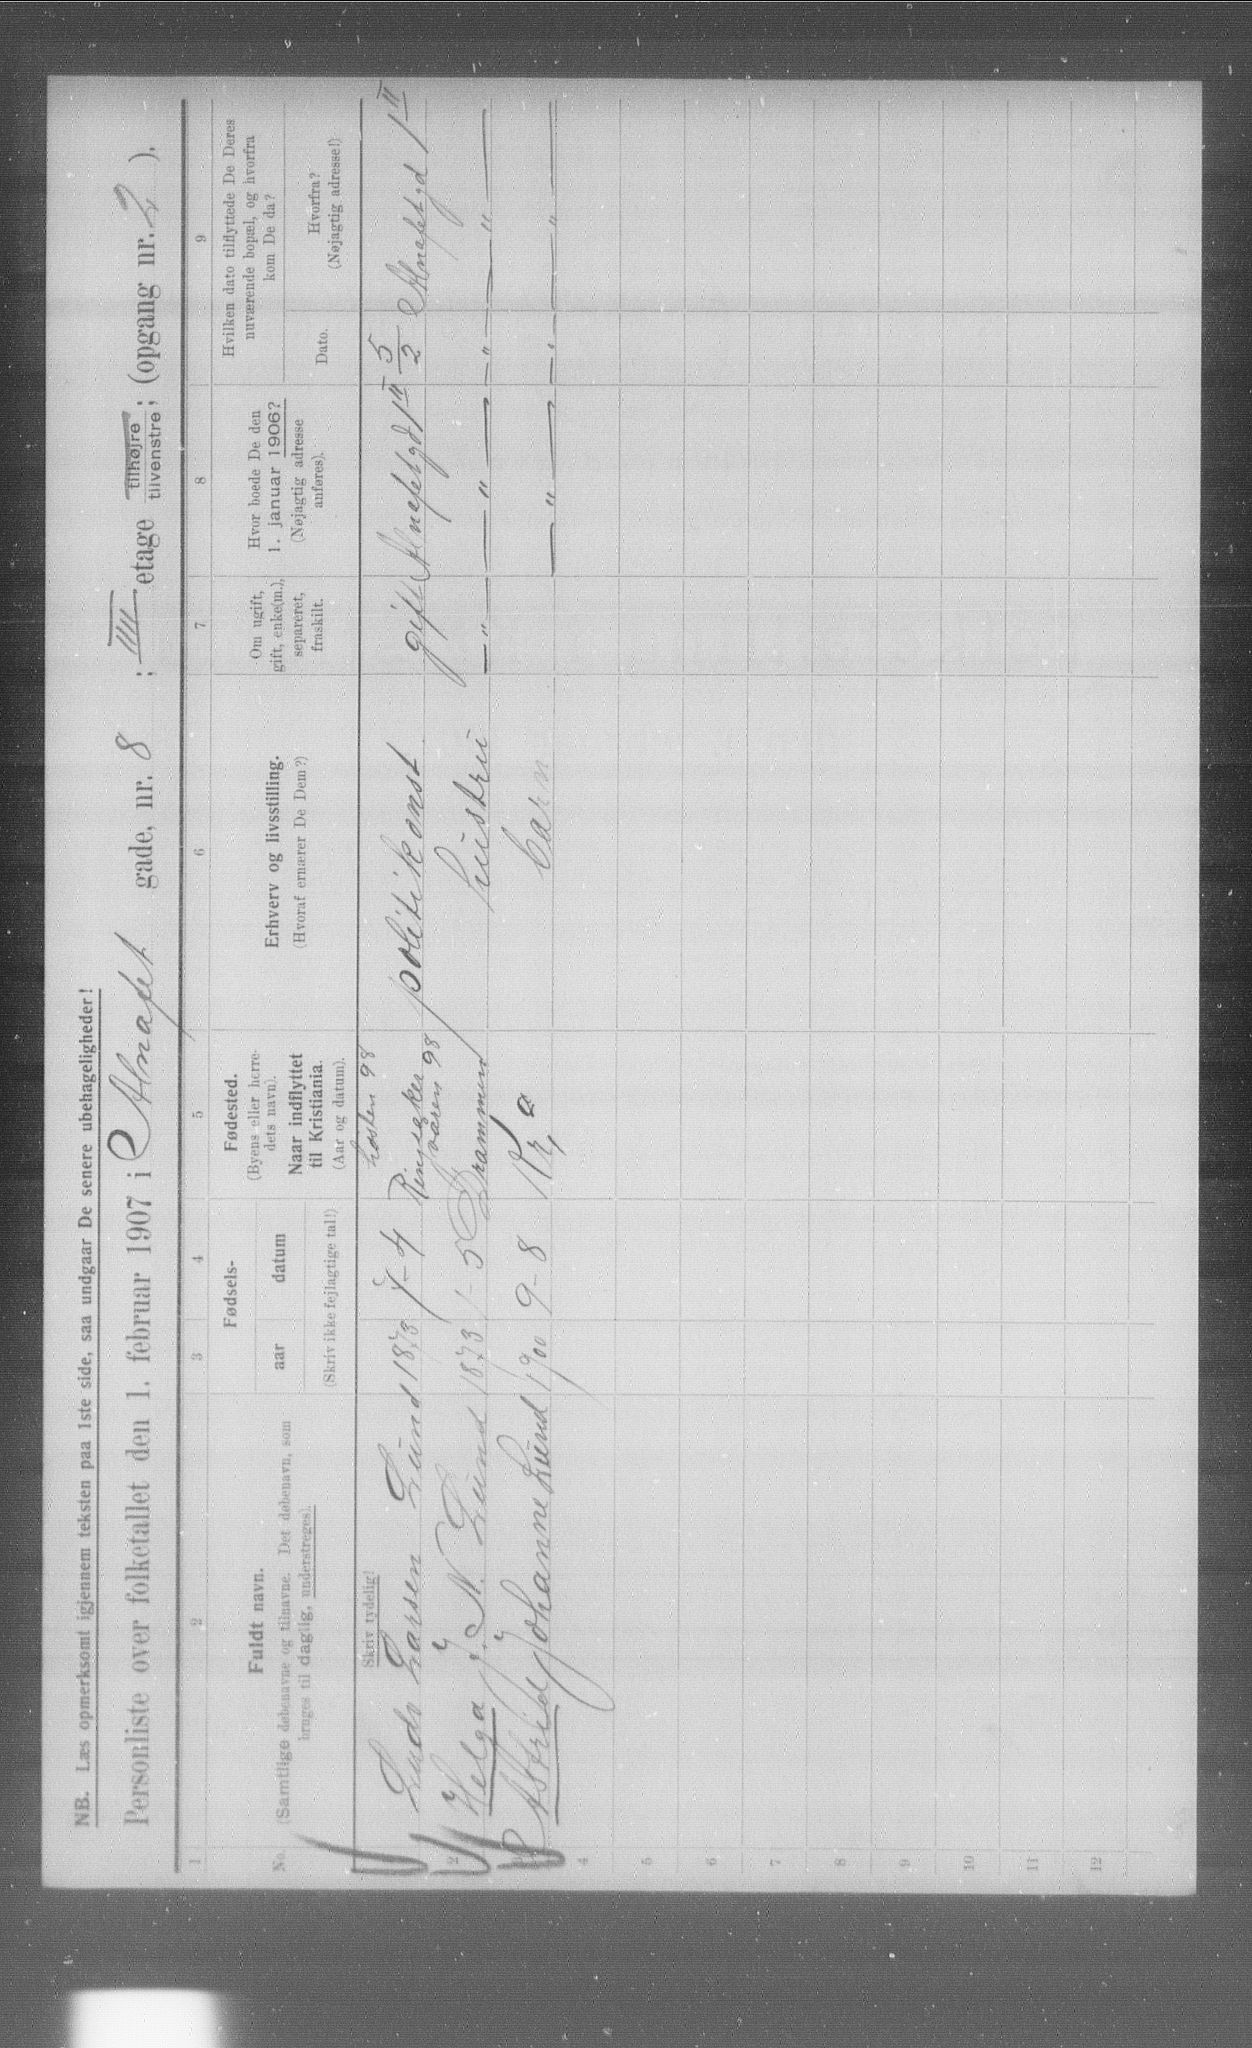 NB. Læs opmerksomt igjennem teksten paa 1ste side, saa undgaar De senere ubehageligheder!
Personliste over folketallet den 1. februar 1907 i Alnafet gade, nr. 8 ; III etage tilhøjre tilvenstre; (opgang nr. 2 ).
1 2 3 4 5 6 7 8 9
No.
Fuldt navn.
(Samtlige døbenavne og tilnavne. Det døbenavn, som
bruges til daglig, understreges).
Fødsels-
aar datum
(Skriv ikke fejlagtige tal!)
Fødested.
(Byens eller herre-
dets navn).
Naar indflyttet
til Kristiania.
(Aar og datum).
Erhverv og livsstilling.
(Hvoraf ernærer De Dem?)
Om ugift,
gift, enke(m.),
separeret,
fraskilt.
Hvor boede De den
1. januar 1906?
(Nøjagtig adresse
anføres).
Hvilken dato tilflyttede De Deres
nuværende bopæl, og hvorfra
kom De da?
Dato.
Hvorfra?
(Nøjagtig adresse!)
Skriv tydelig!
høsten 98
Ludv Larsen Lund 1873 7-4 Ringsaker politikonst gift Alnafetgd 1 II 5/2 Alnafetgd 1 II
våren 98
2 Helga J. N. Lund 1873 1-5 Drammen hustru -"- -"- -"- -"-
Astrid Johanne Lund 1900 9-8 Kr,a barn -"- -"- -"-
4
5
6
7
8
9
10
11
12